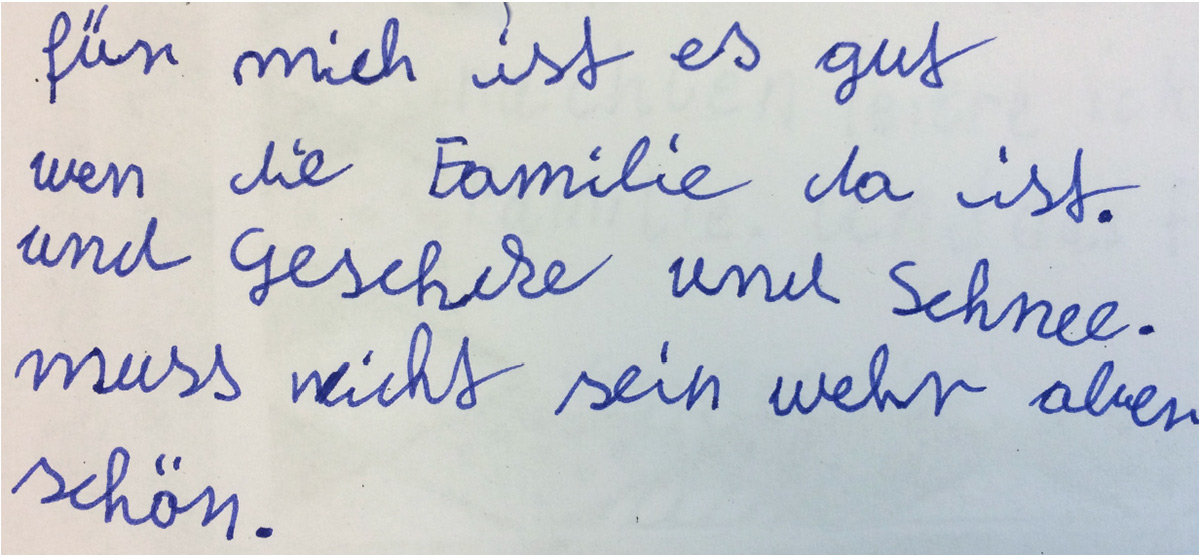 für mich ist es gut
wen die Familie da ist.
und Geschcke und Schnee.
muss nicht sein wehr aber
schön.